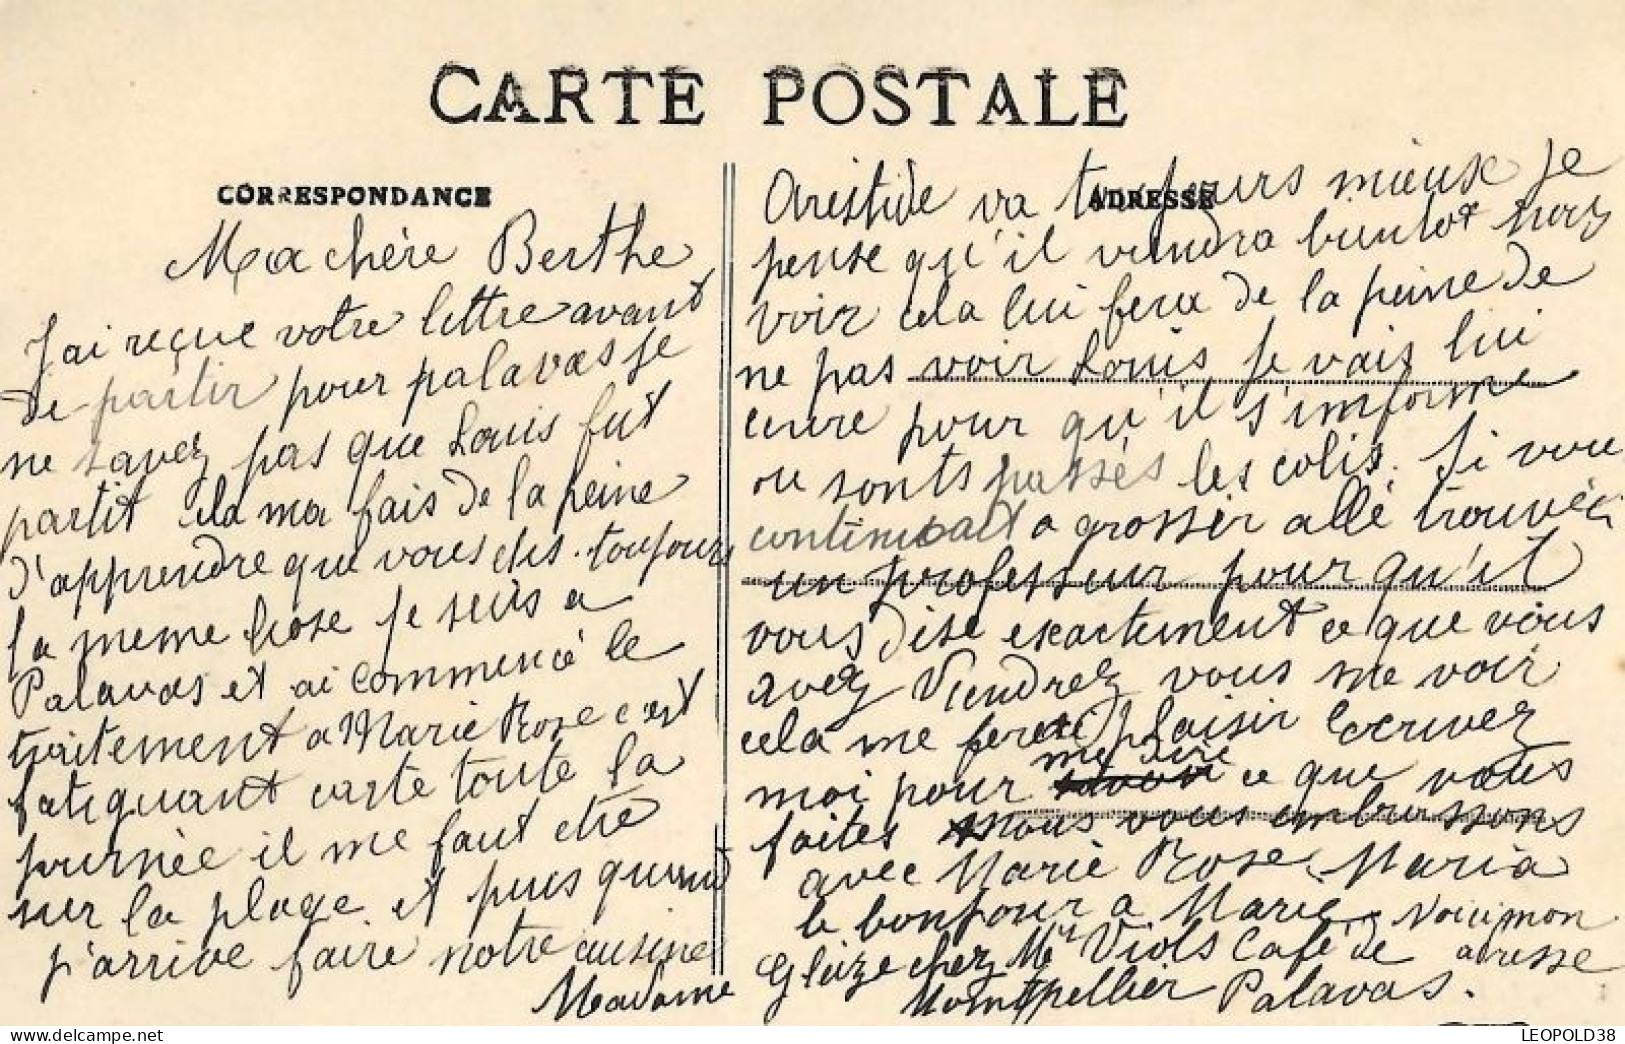 CARTE POSTALE
CORRESPONDANCE
Ma chère Berthe
J'ai reçue votre lettre avant
de partir pour palavas je
ne savez pas que Louis fut
partit cela ma fais de la peine
d'apprendre que vous etes toujours
la meme chose je suis a
Palavas et ai commencé le
traitement a Marie Rose c'est
fatiguant carte toute la
journée il me faut etre
sur la plage et puis quand
j'arrive faire notre cuisine
ADRESSE
Aristide va toujours mieux Je
pense qu'il viendra bientot nous
voir cela lui fera de la peine de
ne pas voir Louis je vais lui
ecrire pour qu'il s'informe
ou sonts passés les colis. Si vous
continuait a grossir allé trouvéz
un professeur pour qu'il
vous dise exactement ce que vous
avez Viendrez vous me voir
cela me ferai plaisir Ecrivez
moi pour me dire ce que vous
faites nous vous embrassons
avec Marie Rose, Maria
le bonjour a Marie, Voici mon
adresse
Madame Gleize chez Mr Viols Café de
Montpellier Palavas.
LEOPOLD38